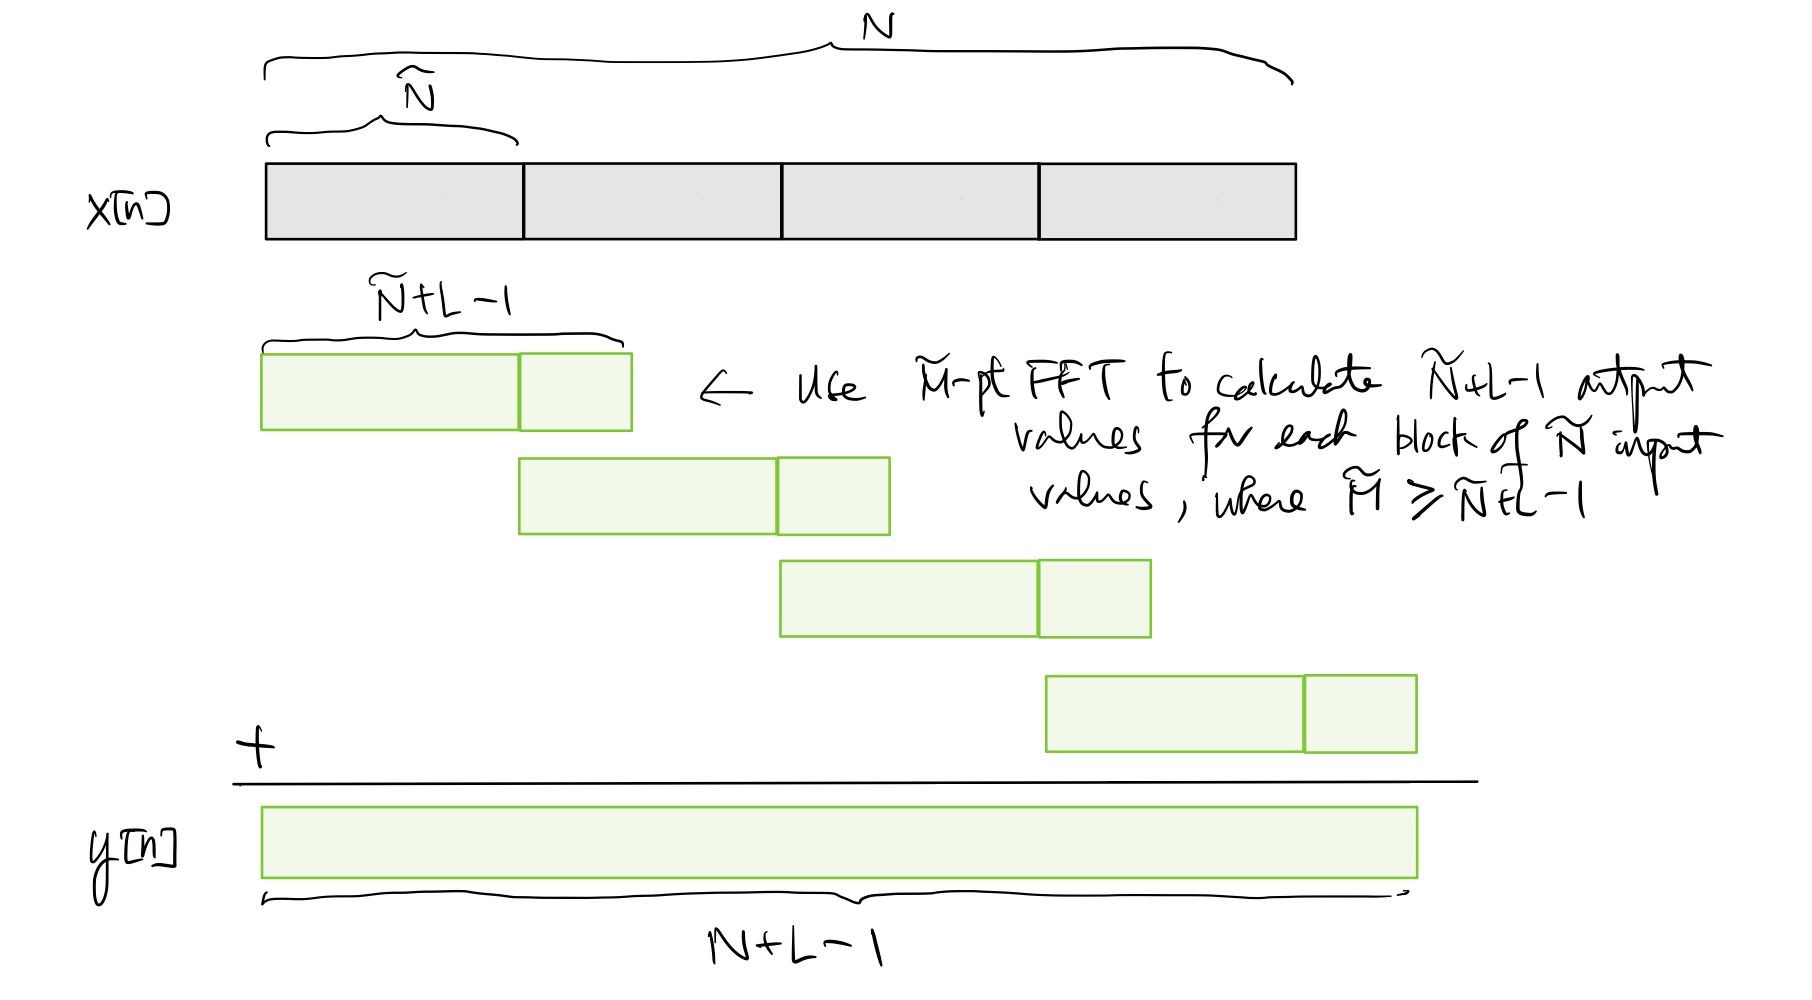 N
Ñ
x[n]
Ñ+L-1
← Use M̃-pt FFT to calculate Ñ+L-1 output
values for each block of Ñ input
values, where M̃ ≥ Ñ+L-1
+
y[n]
N+L-1